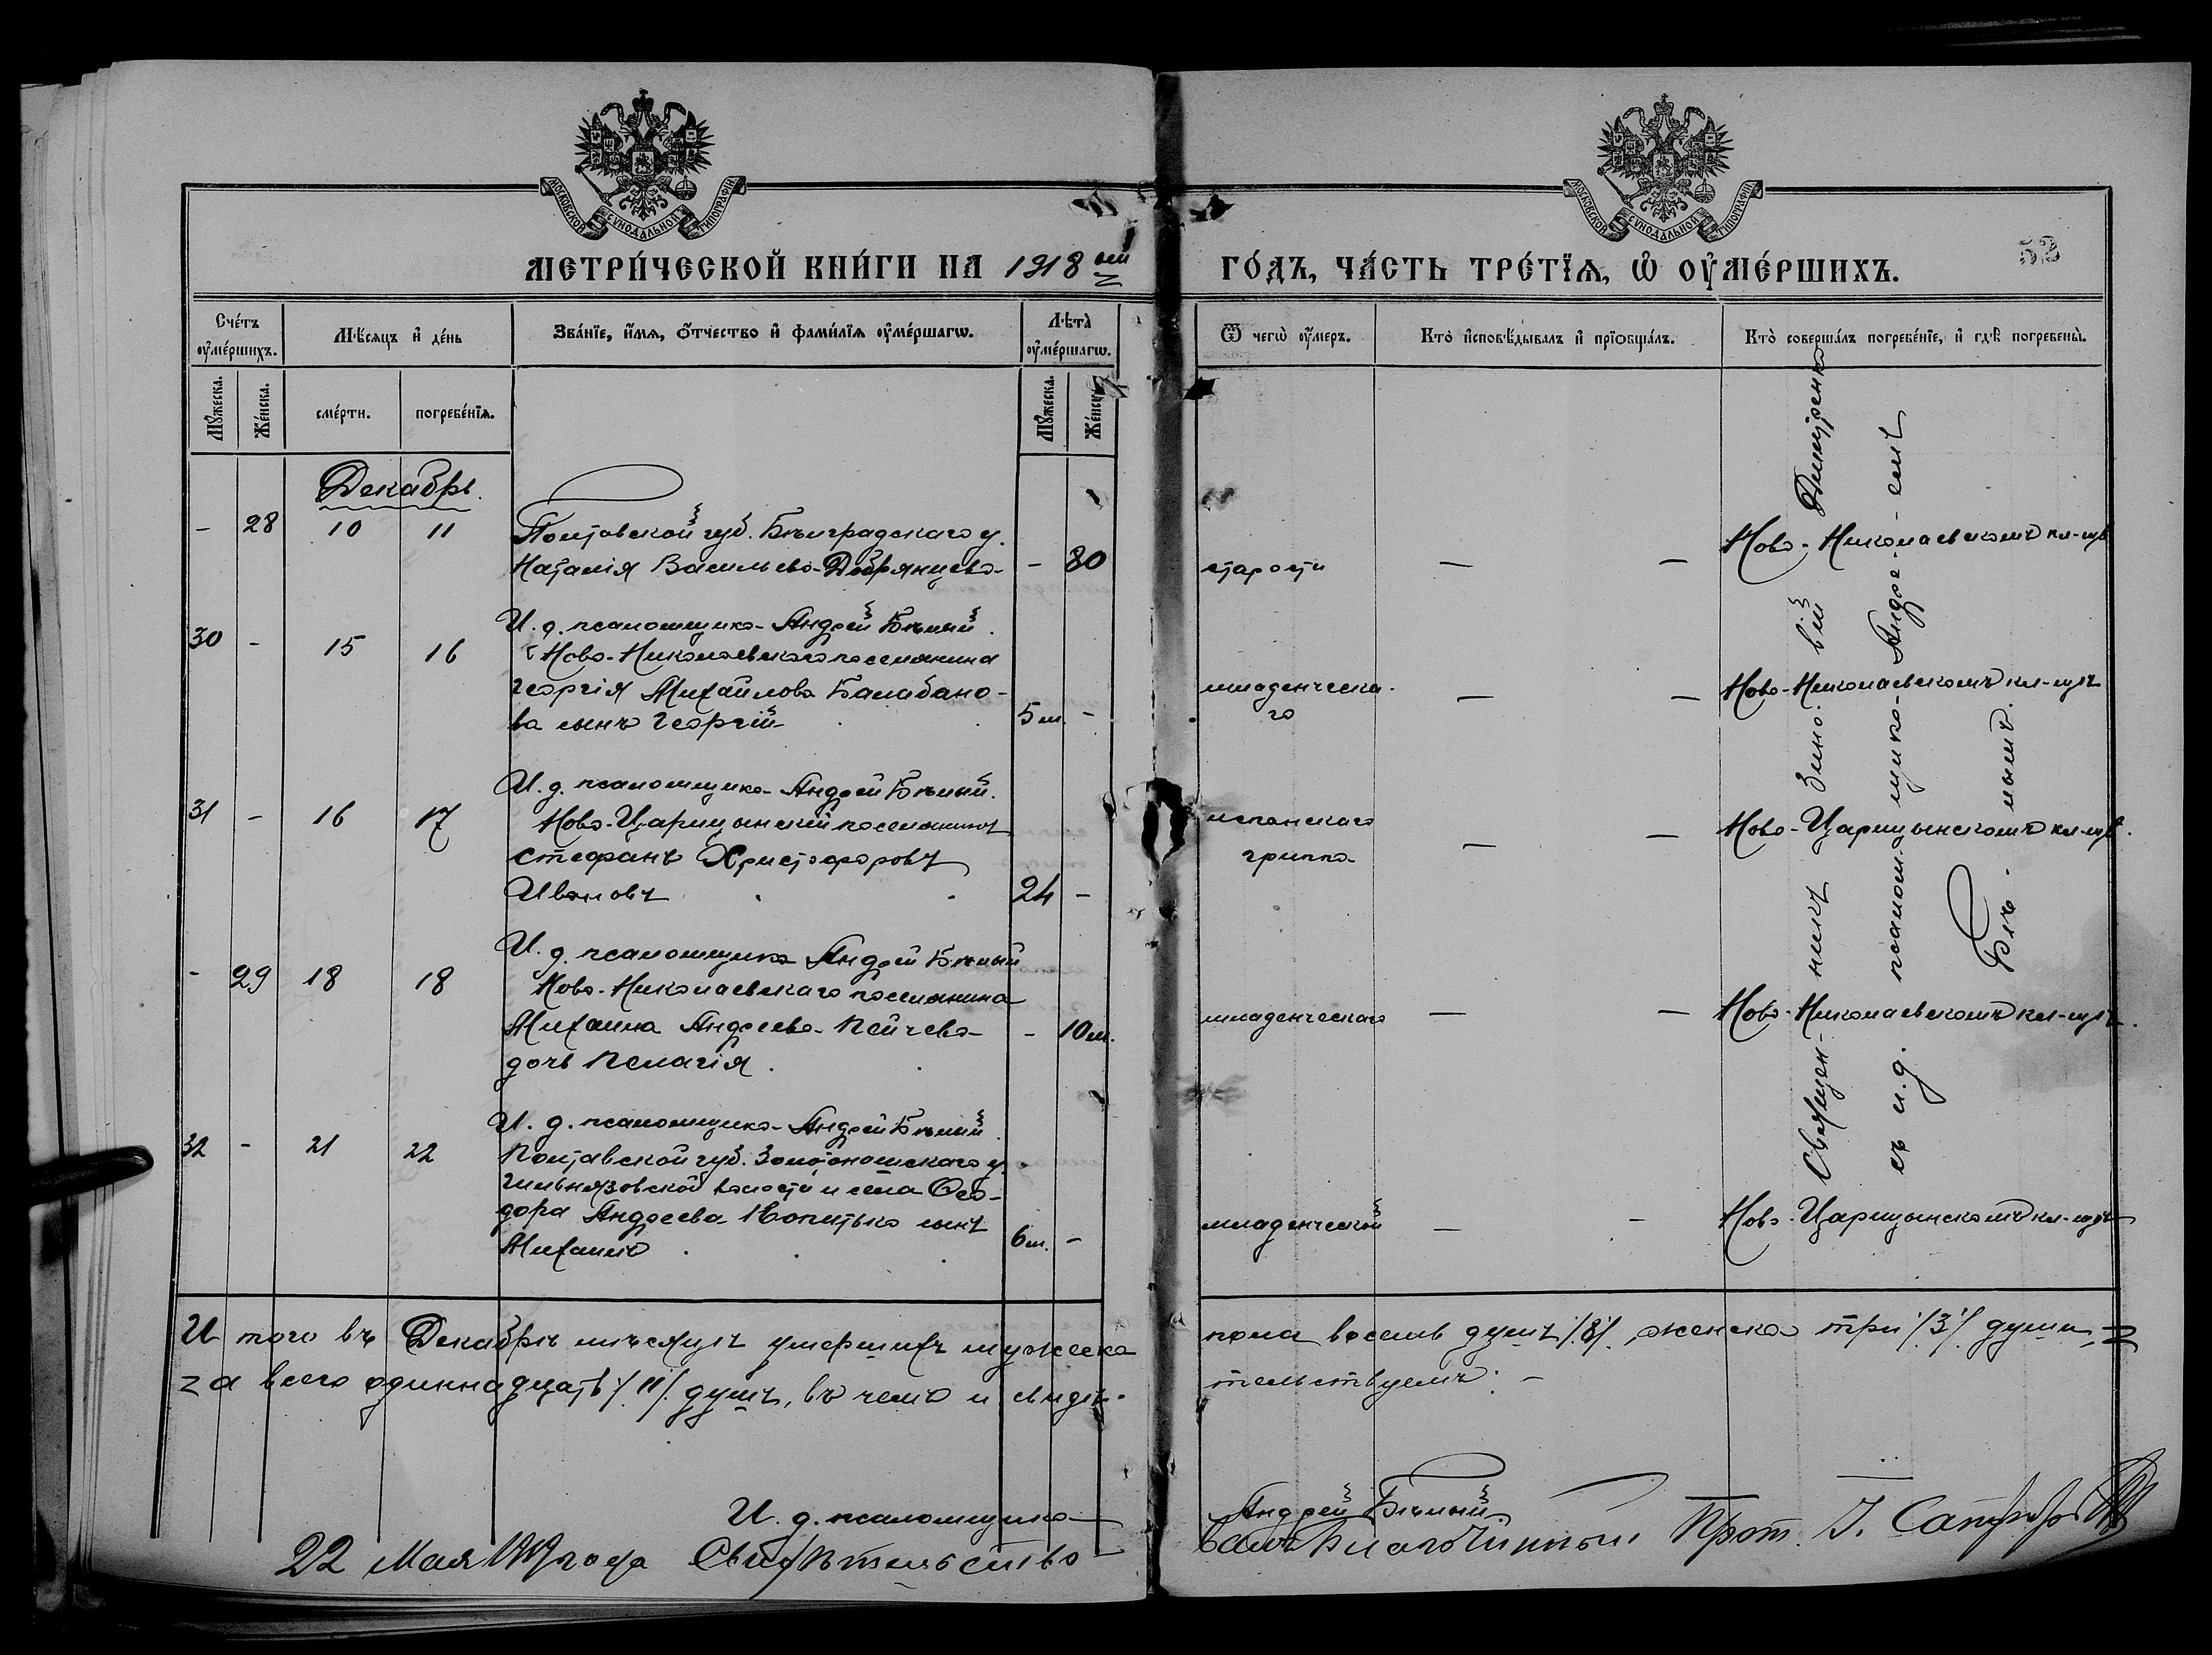 МОСКОВСКОЙ СУНОДАЛЬНОЙ ТИПОГРАФІИ
МОСКОВСКОЙ СУНОДАЛЬНОЙ ТИПОГРАФІИ
МЕТРИ́ЧЕСКОЙ КНИ́ГИ НА 1918 ый ГО́ДЪ, ЧА́СТЬ ТРЕ́ТЇѦ, Ѡ҆ ОУ҆МЕ́РШИХЪ.
53
Сче́тъ оу҆ме́ршихъ.
Мѣ́сяцъ и҆ де́нь
Зва́нїе, и҆́мя, ѻ҆́тчество и҆ фами́лїя оу҆ме́ршагѡ.
Лѣта̀ оу҆ме́ршагѡ.
Ѿ чегѡ̀ оу҆́меръ.
Кто̀ и҆сповѣ́дывалъ и҆ прїѻбща́лъ.
Кто̀ соверша́лъ погребе́нїе, и҆ гдѣ̀ погребены̀.
Мꙋ́жеска.
Же́нска.
сме́рти.
погребе́нїя.
Мꙋ́жеска.
Же́нска.
Декабрь.
- 28 10 11 Полтавской губ. Бѣлградскаго у.
Наталія Васильева Добрянцева - 80 старости — — Ново-Николаевскомъ кл-щѣ
И. д. псаломщика Андрей Бѣлый.
30 - 15 16 Ново-Николаевскаго поселянина
Георгія Михайлова Балабано-
ва сынъ Георгій 5 м. - младенческа-
го — — Ново-Николаевскомъ кл-щѣ
И. д. псаломщика Андрей Бѣлый.
31 - 16 17 Ново-Царицынскій поселянинъ
Стефанъ Христофоровъ
Ивановъ 24 - испанскаго
гриппа — — Ново-Царицынскомъ кл-щѣ.
И. д. псаломщика Андрей Бѣлый
- 29 18 18 Ново-Николаевскаго поселянина
Михаила Андреева Пейчева
дочь Пелагія. - 10 м. младенческаго — — Ново-Николаевскомъ кл-щѣ.
И. д. псаломщика Андрей Бѣлый.
32 - 21 22 Полтавской губ. Золотоношскаго у.
Гельмязовской волости и села Ѳео-
дора Андреева Копитько сынъ
Михаилъ 6 м. - младенческой — - Ново-Царицынскомъ кл-щѣ
Священ-никъ Зино-вій Дмитренко
съ и. д. псалом-щика Андре-емъ
Бѣ-лымъ.
И того въ Декабрѣ мѣсяцѣ умершихъ мужеска пола восемь душъ /8/. женска три /3/ души,
а всего одиннадцать /11/. душъ, въ чемъ и свидѣ-тельствуемъ: -
И. д. псаломщика Андрей Бѣлый.
22 Мая 1919 года Свидѣтельство-валъ Благочинный Прот. І.